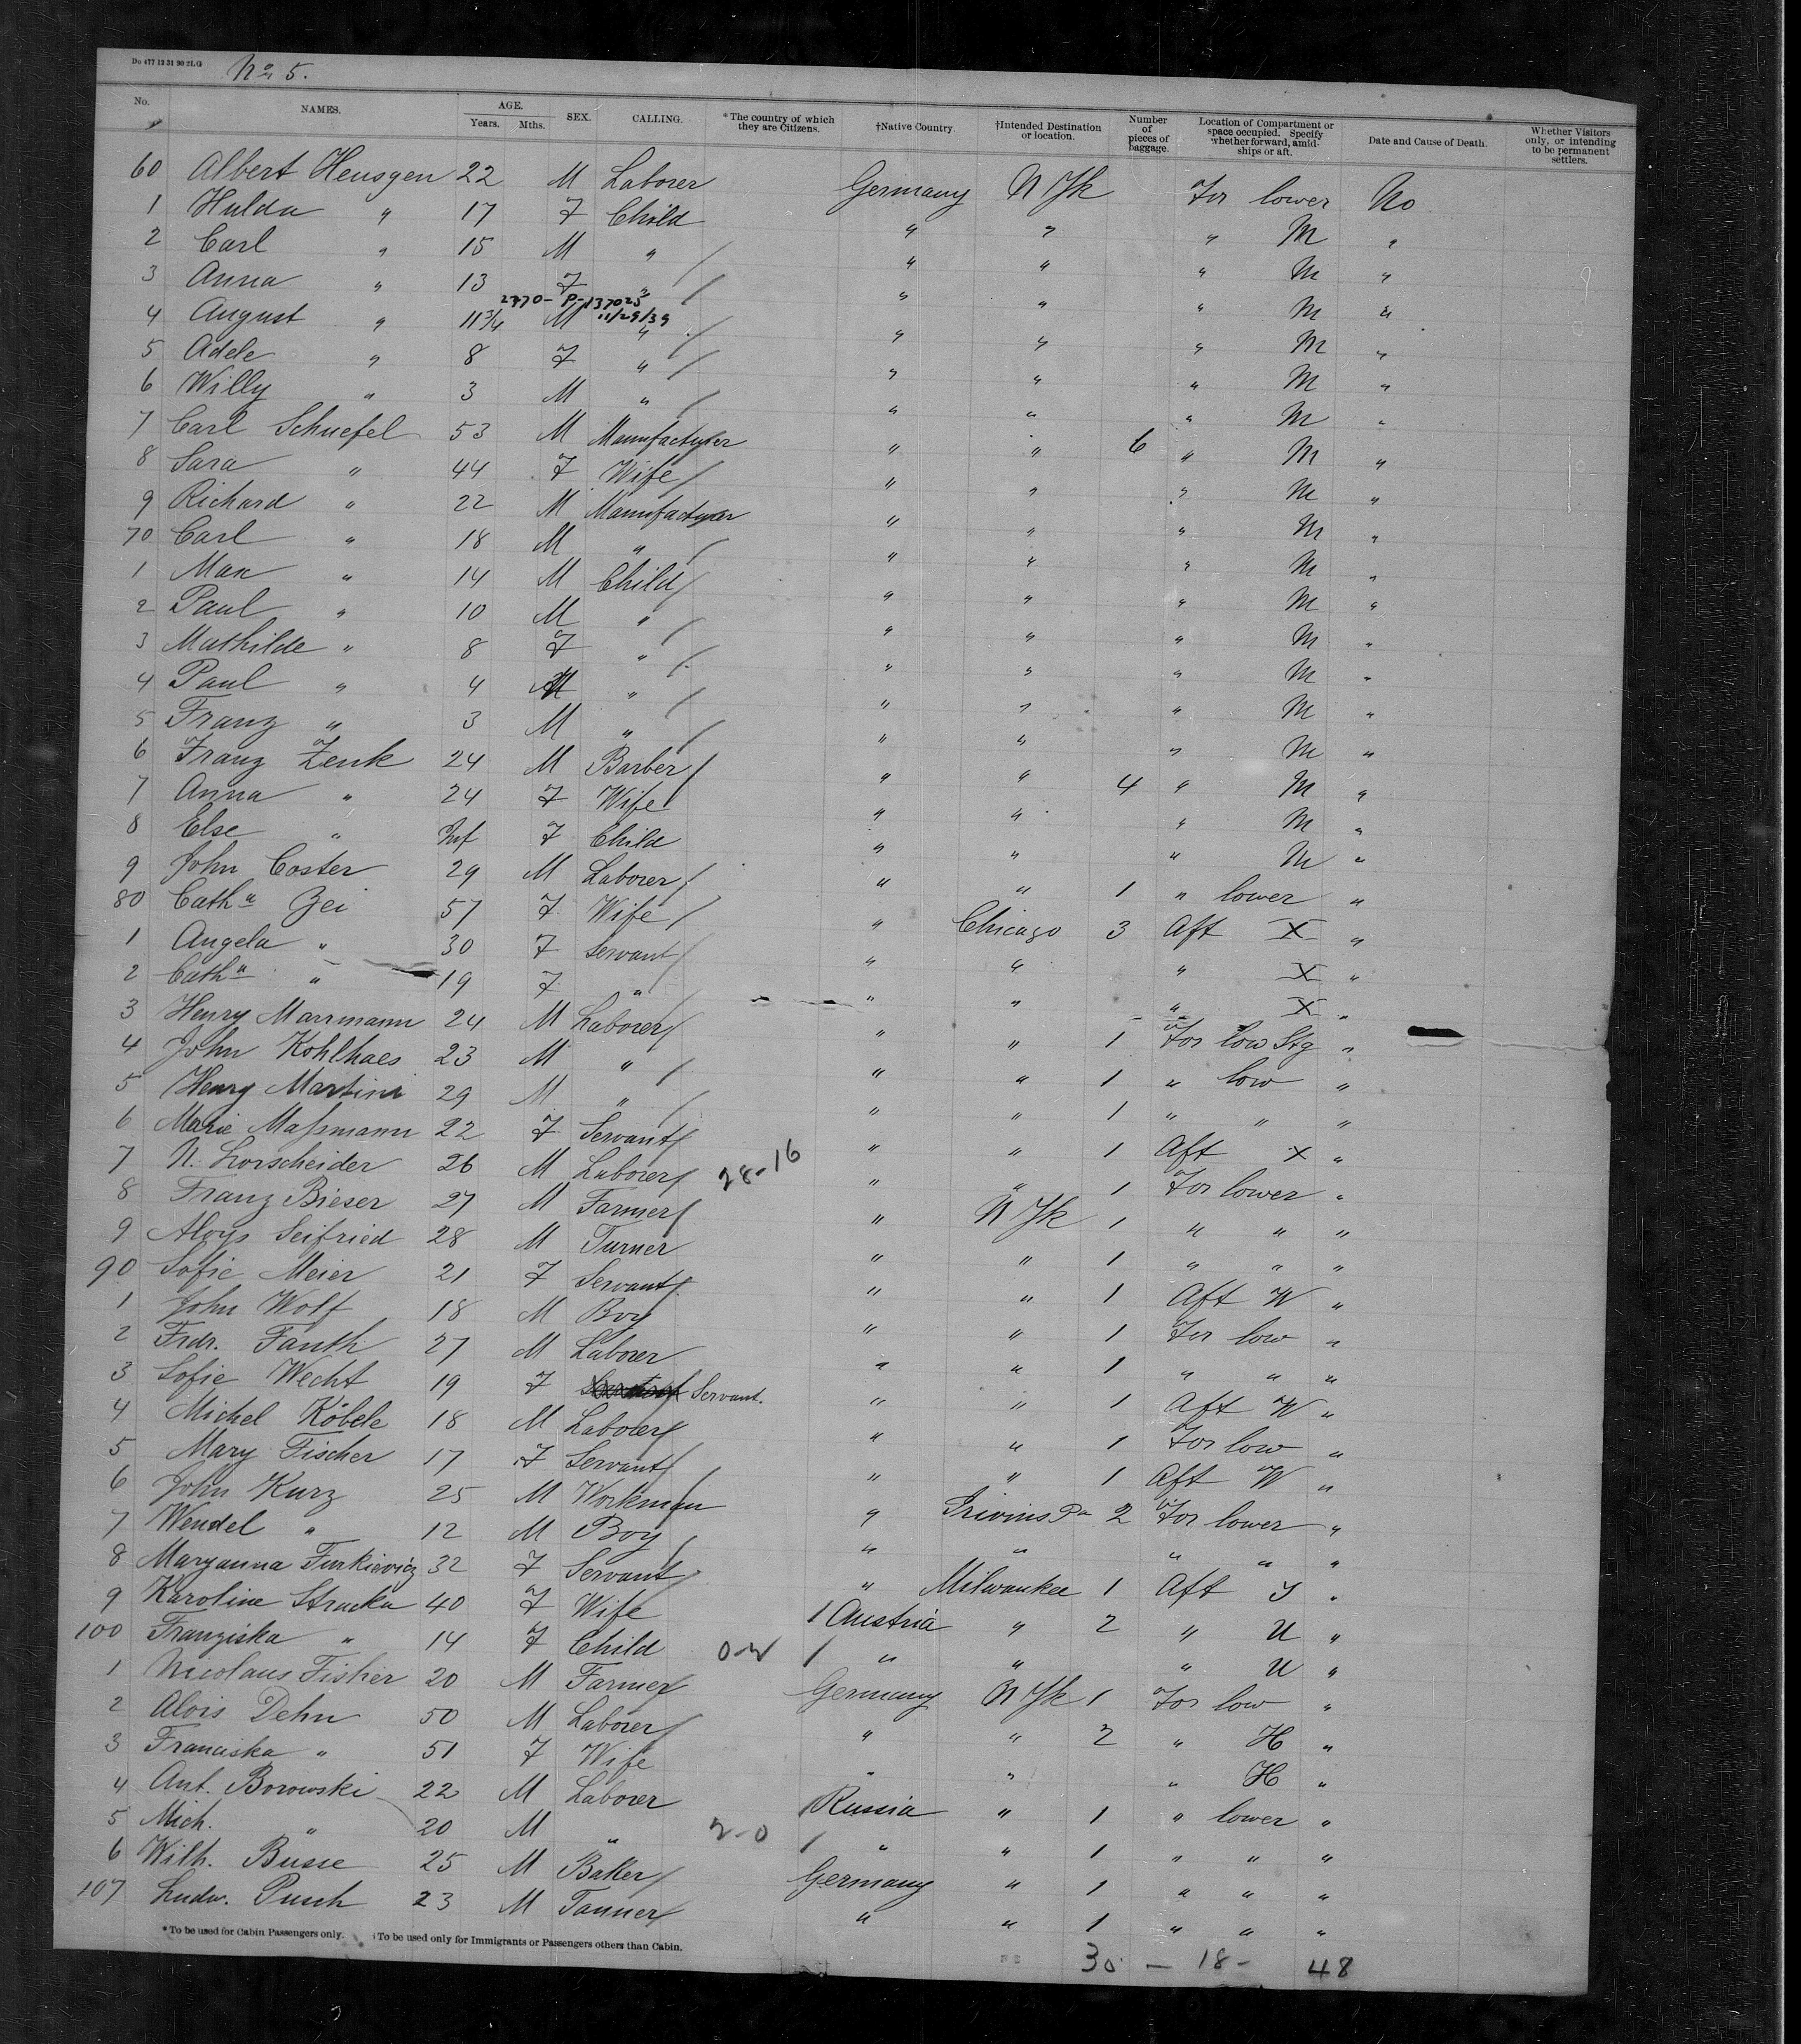 Do 477 12 31 90 2LG
No 5.
No. NAMES. AGE. Years. Mths. SEX. CALLING. *The country of which they are Citizens. †Native Country. †Intended Destination or location. Number of pieces of baggage. Location of Compartment or space occupied. Specify whether forward, amidships or aft. Date and Cause of Death. Whether Visitors only, or intending to be permanent settlers.
60 Albert Heusgen 22 M Laborer Germany N Yk For lower No
1 Hulda " 17 F Child " " " M "
2 Carl " 15 M " / " " " M "
3 Anna " 13 F " / " " " M "
2770- P-137025
11/29/39
4 August " 11 3/4 M " / " " " M "
5 Adele " 8 F " / " " " M "
6 Willy " 3 M " / " " " M "
7 Carl Schuefel 53 M Manufacturer " " 6 " M "
8 Sara " 44 F Wife / " " " M "
9 Richard " 22 M Manufacturer " " " M "
70 Carl " 18 M " / " " " M "
1 Max " 14 M Child / " " " M "
2 Paul " 10 M " / " " " M "
3 Mathilde " 8 F " / " " " M "
4 Paul " 4 M " / " " " M "
5 Franz " 3 M " / " " " M "
6 Franz Zenk 24 M Barber / " " 4 " M "
7 Anna " 24 F Wife " " " M "
8 Else " Inf F Child " " " M "
9 John Coster 29 M Laborer / " " 1 " lower "
80 Catha Zei 57 F Wife / " Chicago 3 Aft X "
1 Angela " 30 F Servant / " " " X "
2 Catha " 19 F " " " " X "
3 Henry Marrmann 24 M Laborer / " " 1 For low Stg "
4 John Kohlhaes 23 M " / " " 1 " low "
5 Henry Martini 29 M " / " " 1 " " "
6 Marie Maßmann 22 F Servant / " " 1 Aft X "
7 N. Lorscheider 26 M Laborer / 28-16 " " 1 For lower "
8 Franz Bieser 27 M Farmer / " N Yk 1 " " "
9 Aloys Seifried 28 M Turner " " 1 " " "
90 Sofie Meier 21 F Servant / " " 1 Aft W "
1 John Wolf 18 M Boy " " 1 For low "
2 Frdr. Fauth 27 M Laborer " " 1 " " "
3 Sofie Wecht 19 F Servant. " " 1 Aft W "
4 Michel Köbele 18 M Laborer / " " 1 For low "
5 Mary Fischer 17 F Servant / " " 1 Aft W "
6 John Kurz 25 M Workman " Pa 2 For lower "
7 Wendel " 12 M Boy / " " " " "
8 Maryanna Turkievicz 32 F Servant / " Milwaukee 1 Aft Y "
9 Karoline Stracka 40 F Wife / Austria " 2 " U "
100 Franziska " 14 F Child / " " " U "
1 Nicolaus Fisher 20 M Farmer / Germany N Yk 1 For low "
2 Alois Dehn 50 M Laborer / " " 2 " H "
3 Franciska " 51 F Wife " " " H "
4 Ant. Borowski 22 M Laborer / Russia " 1 " lower "
5 Mich. " 20 M " 2-0 / " " 1 " " "
6 Wilh. Busse 25 M Baker / Germany " 1 " " "
107 Ludw. Pusch 23 M Tanner / " " 1 " " "
*To be used for Cabin Passengers only. †To be used only for Immigrants or Passengers others than Cabin.
30 - 18 - 48